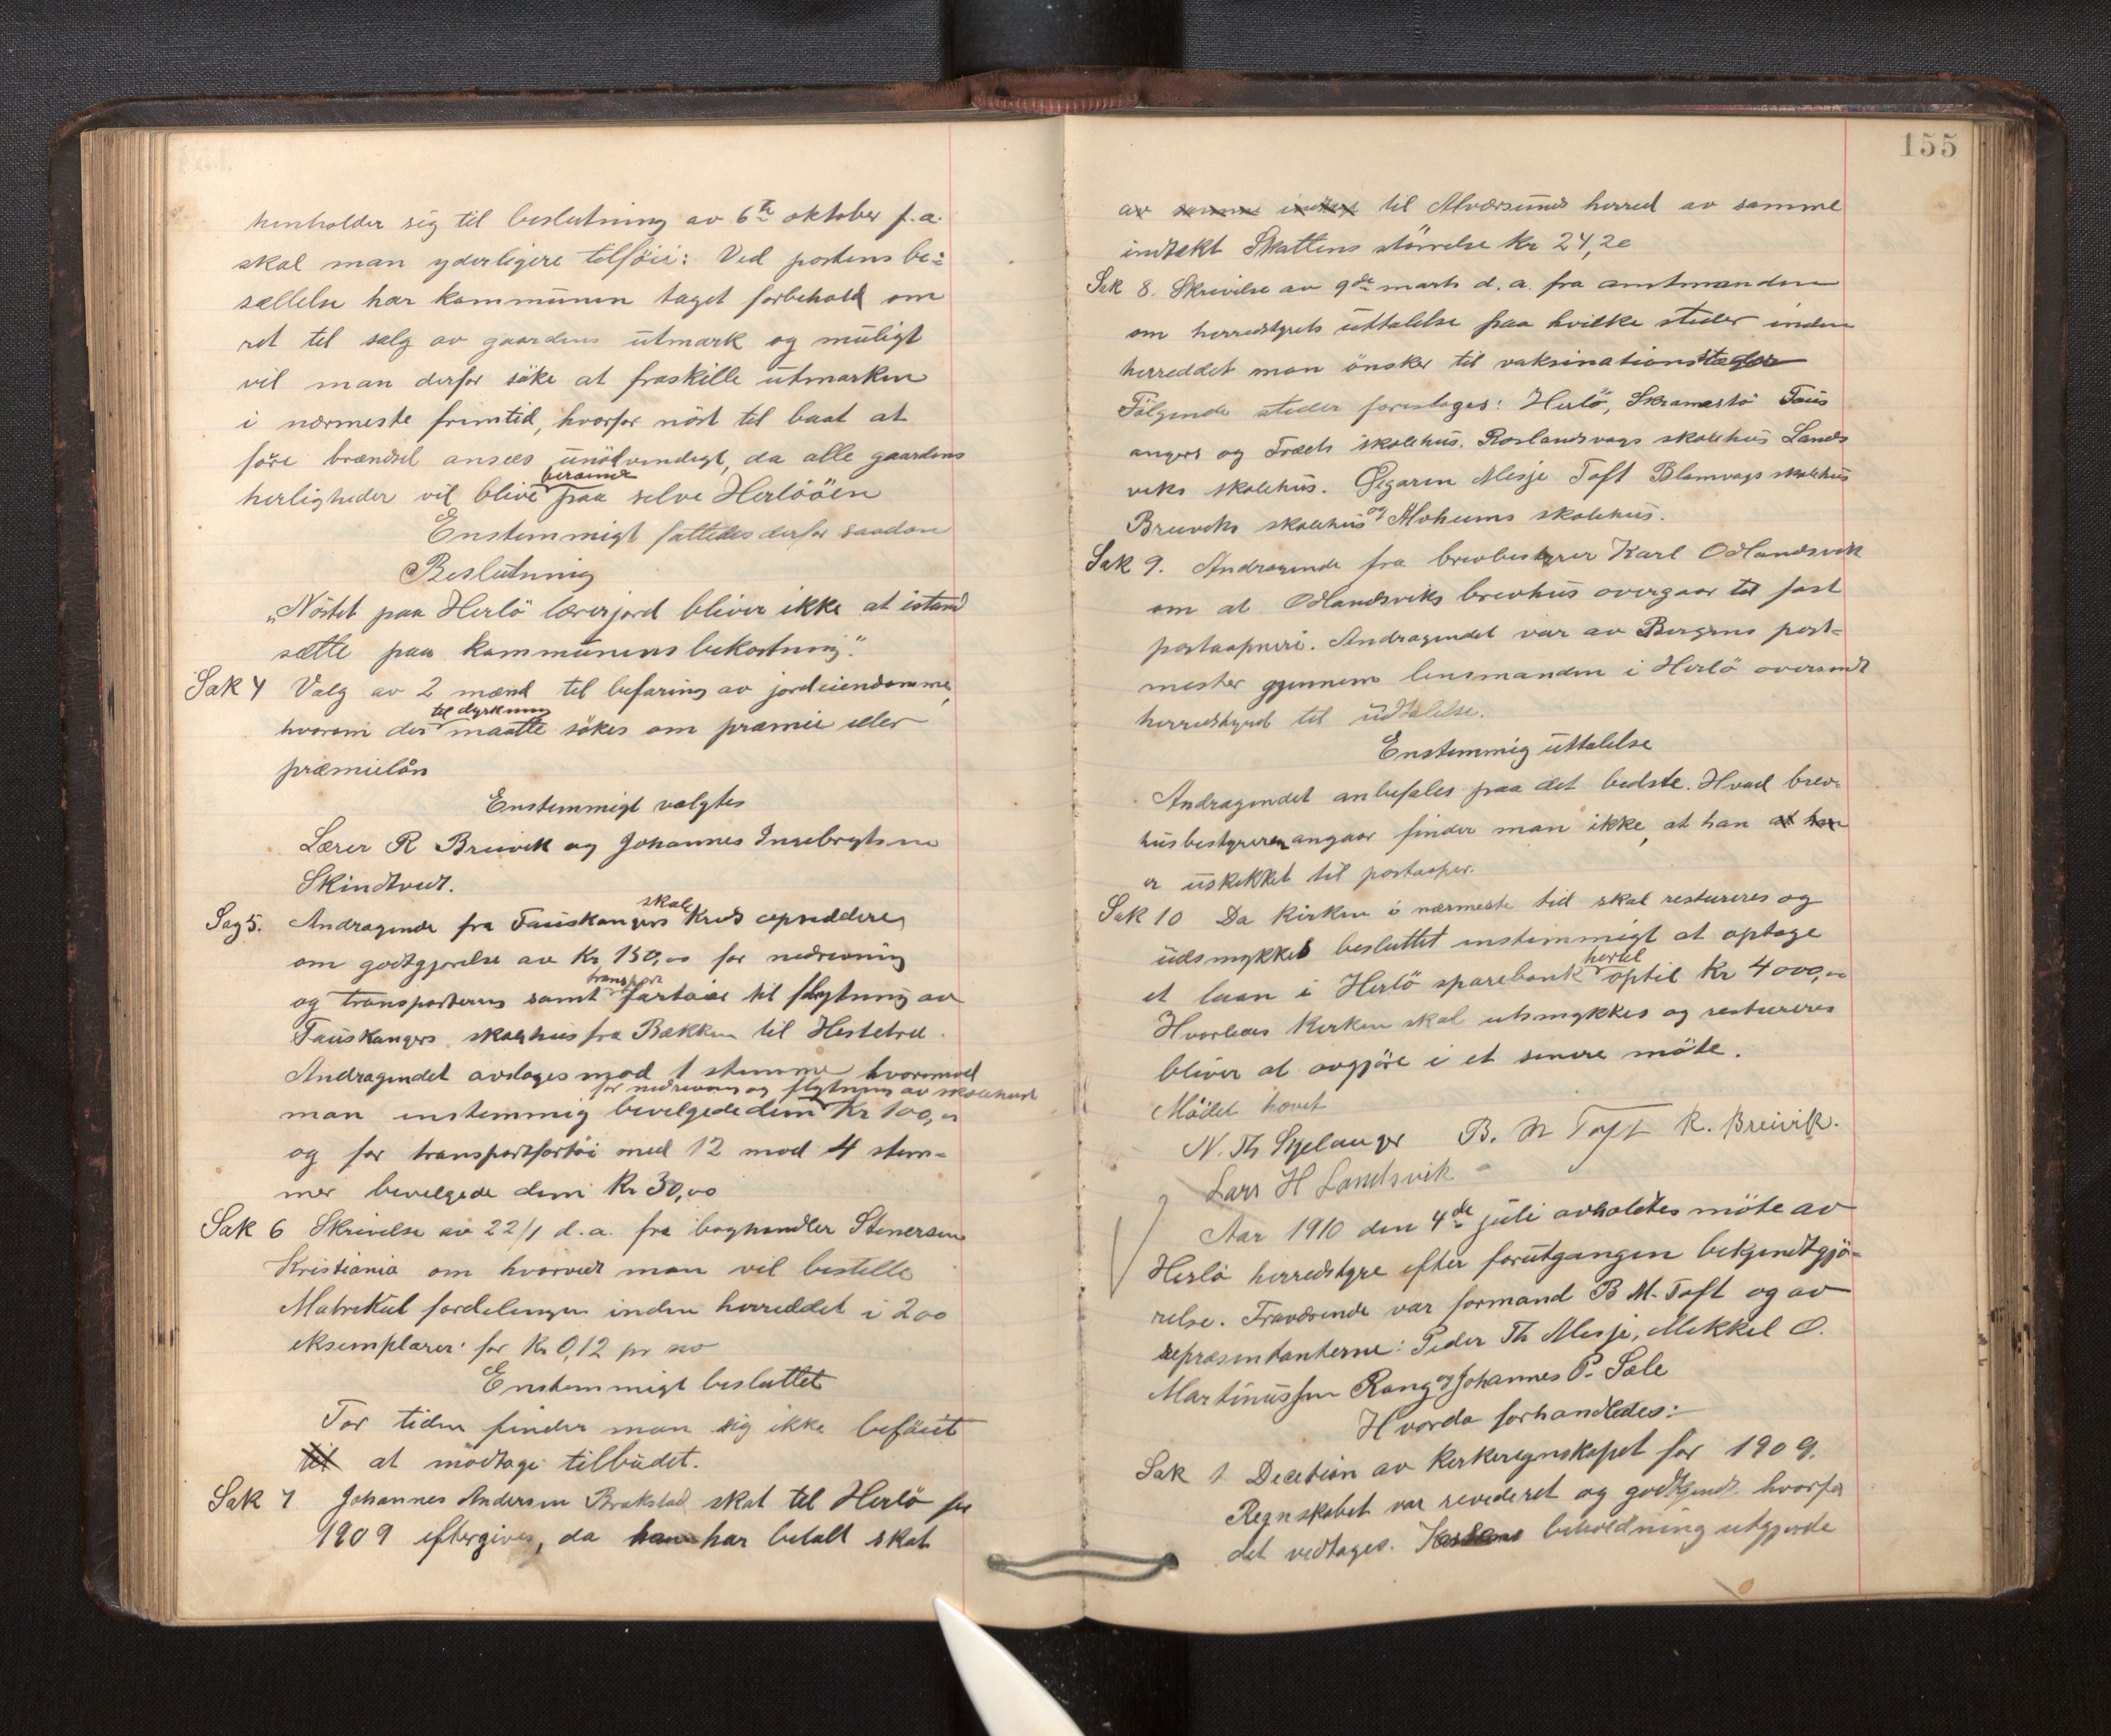 henholder sig til beslutning av 6te oktober f.a.
skal man yderligere tilföie: Ved postens be-
sættelse har kommunen taget forbehold om
ret til salg av gaardens utmark og muligt
vil man derfor söke at fraskille utmarken
i nærmeste fremtid, hvorfor nöst til baat at
före brændsel ansees unödvendigt, da alle gaardens
herligheder vil blive beroende paa selve Herlööen
Enstemmigt fattedes derfor saadan
Beslutning
"Nöstet paa Herlö lærerjord bliver ikke at istand
sætte paa kommunens bekostning."
Sak 4 Valg av 2 mænd til befaring av jordeiendomme,
hvorom der til dyrkning maatte sökes om præmie eller
præmielån
Enstemmigt valgtes
Lærer R Breivik og Johannes Ingebrigtsen
Skindtveit.
Sag 5. Andragende fra Fauskangers skole Kreds opsiddere,
om godtgjörelse av Kr 150,00 for nedrivning
og transporterens samt transport fartöier til flytning av
Fauskangers skolehus fra Bækken til Hestetræ.
Andragendet avsloges mod 1 stemme hvorimod
man enstemmig bevilgede dem for nedrivning og flytning av skolehuset Kr 100,00
og for transportfartöi med 12 mod 4 stem-
mer bevilgede dem Kr 30,00
Sak 6 Skrivelse av 22/1 d.a. fra boghandler Stenersen
Kristiania om hvorvidt man vil bestille
Matrikul fordelingen inden herreddet i 200
eksemplarer for Kr 0,12 pr no
Enstemmigt besluttet
For tiden finder man sig ikke beföiet
til at modtage tilbudet.
Sak 7 Johannes Andersen Brakstad skat til Herlö for
1909 eftergives, da han har betalt skat
155
av samme indtægt til Alversunds herred av samme
indtækt Skattens störrelse Kr 24,20
Sak 8. Skrivelse av 9de marts d.a. fra amtmanden
om herredstyrets uttalelse paa hvilke steder inden
herreddet man önsker til vaksinationsteder
Fölgende steder foreslages: Herlö, Skramestö Faus
angers og Træets skolehus. Roslandsvags skolehus Lands
viks skolehus. Øygaren Mesje Toft Blomvags skolehus
Breiviks skolehus og Alvheims skolehus.
Sak 9. Andragende fra brevbestyrer Karl Odlandsvik
om at Odlandsviks brevhus overgaar til fast
postaapneri. Andragendet var av Bergens post-
mester gjennem lensmanden i Herlö oversendt
herredstyret til udtalelse.
Enstemmig uttalelse
Andragendet anbefales paa det bedste. Hvad brev-
husbestyreren angaar finder man ikke, at han at han
er uskikket til postaaper.
Sak 10 Da Kirken i nærmeste tid skal restureres og
udsmykkes besluttet enstemmigt at optage
et laan i Herlö sparebank hertil optil Kr 4000,00
Hvorledes Kirken skal utsmykkes og restureres
bliver at avgjöre i et senere möte.
Mödet hævet
N. Th Skjelanger B. M Toft R. Breivik.
Lars H Landsvik
Aar 1910 den 4de juli avholdtes möte av
Herlö herredstyre efter forutgangen bekjendtgjö-
relse. Fraværende var formand B M. Toft og av
repræsentanterne: Peder Th Mesje, Mikkel O.
Martinussen Rong og Johannes P. Sæle
Hvorda forhandledes:
Sak 1 Decition av Kirkeregnskapet for 1909.
Regnskabet var revideret og godkjendt hvorfor
det vedtages. Kassens beholdning utgjorde